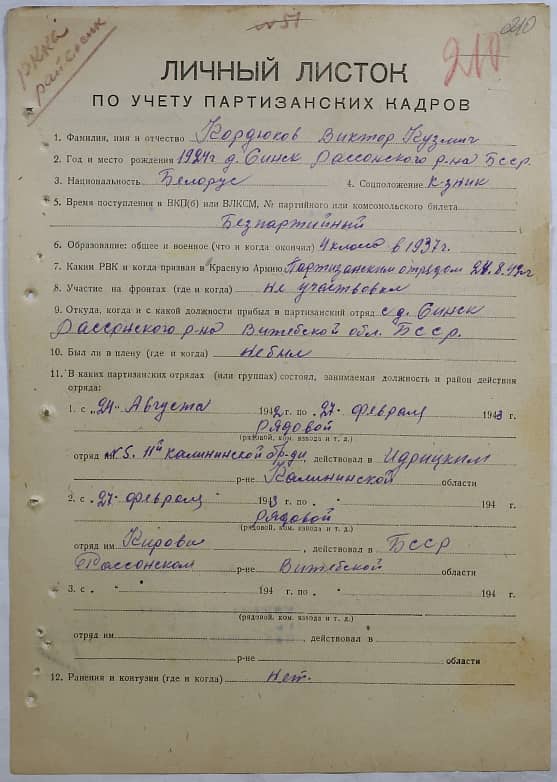 № 51
210
210
РККА
ЛИЧНЫЙ ЛИСТОК
ПО УЧЕТУ ПАРТИЗАНСКИХ КАДРОВ
1. Фамилия, имя и отчество Кордюков Виктор Кузмич
2. Год и место рождения 1924г д. Синск Россонского р-на БССР.
3. Национальность Белорус 4. Соцположение к-зник
5. Время поступления в ВКП(б) или ВЛКСМ, № партийного или комсомольского билета
Безпартийный
6. Образование: общее и военное (что и когда окончил) 4 класса в 1937г.
7. Каким РВК и когда призван в Красную Армию Партизанским отрядом 24.8.42г
8. Участие на фронтах (где и когда) не участвовал
9. Откуда, когда и с какой должности прибыл в партизанский отряд с д. Синск
Россонского р-на Витебской обл. БССР.
10. Был ли в плену (где и когда) небыл
11. В каких партизанских отрядах (или группах) состоял, занимаемая должность и район действия
отряда:
1. с „24" Августа 1942 г. по „27" февраля 1943 г.
Рядовой
(рядовой, ком. взвода и т. д.)
отряд №5. 11й Калининской бр-ды, действовал в Идрицким
р-не Калининской области
2. с „27" февраля 1943 г. по „ " 194 г.
Рядовой
(рядовой, ком. взвода и т. д.)
отряд им Кирова, действовал в БССР
Россонском р-не Витебской области
3. с „ " 194 г. по „ " 194 г.
(рядовой, ком. взвода и т. д.)
отряд им. , действовал в
р-не области
12. Ранения и контузии (где и когда) Нет.